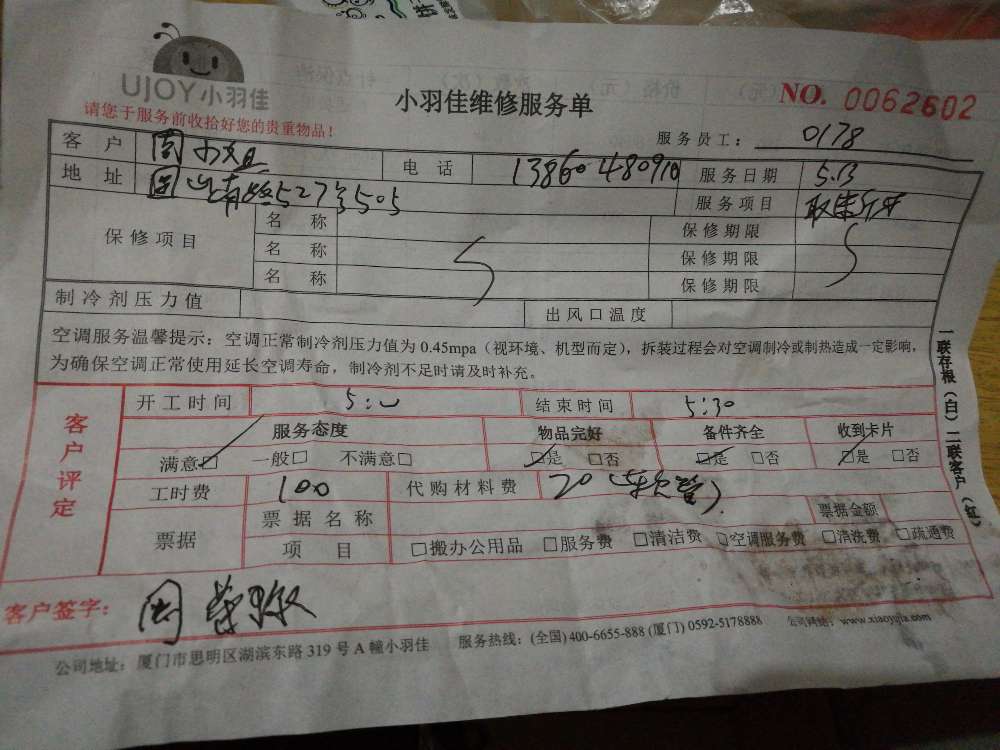 UJOY小羽佳
请您于服务前收拾好您的贵重物品！
小羽佳维修服务单
NO. 0062602
服务员工： 0178
客户 周 电话 13860480910 服务日期 5.13
地址 527号505 服务项目
保修项目 名称 保修期限
名称 保修期限
名称 保修期限
制冷剂压力值 出风口温度
空调服务温馨提示：空调正常制冷剂压力值为 0.45mpa（视环境、机型而定），拆装过程会对空调制冷或制热造成一定影响，
为确保空调正常使用延长空调寿命，制冷剂不足时请及时补充。
客户评定
开工时间 结束时间 5:30
服务态度 物品完好 备件齐全 收到卡片
满意□ 一般□ 不满意□ □是 □否 □是 □否 □是 □否
工时费 100 代购材料费 20（软管）
票据 票据名称 票据金额
项目 □搬办公用品 □服务费 □清洁费 □空调服务费 □清洗费 □疏通费
客户签字： 周
公司地址：厦门市思明区湖滨东路 319 号 A 幢小羽佳 服务热线：(全国) 400-6655-888 (厦门) 0592-5178888 公司网址：www.xiaoyujia.com
一联存根（白）二联客户（红）